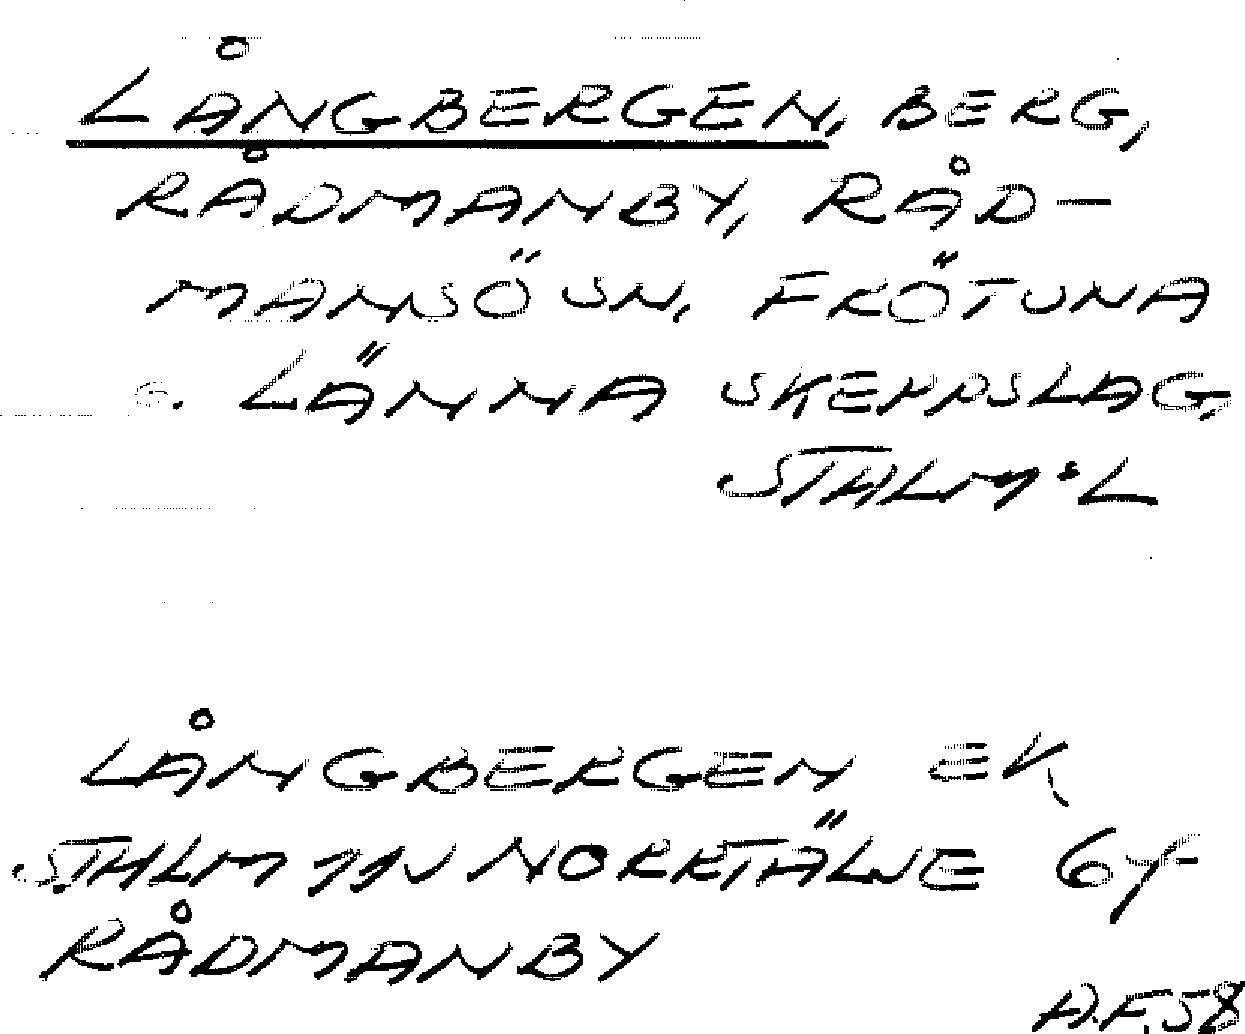 LÅNGBERGEN, BERG,
RÅDMANBY, RÅD-
MANSÖ SN, FRÖTUNA
O. LÄNNA SKEPPSLAG,
STHLMS L
LÅNGBERGEN EK
STHLM 11V NORRTÄLJE 6f
RÅDMANBY
A.F. 58